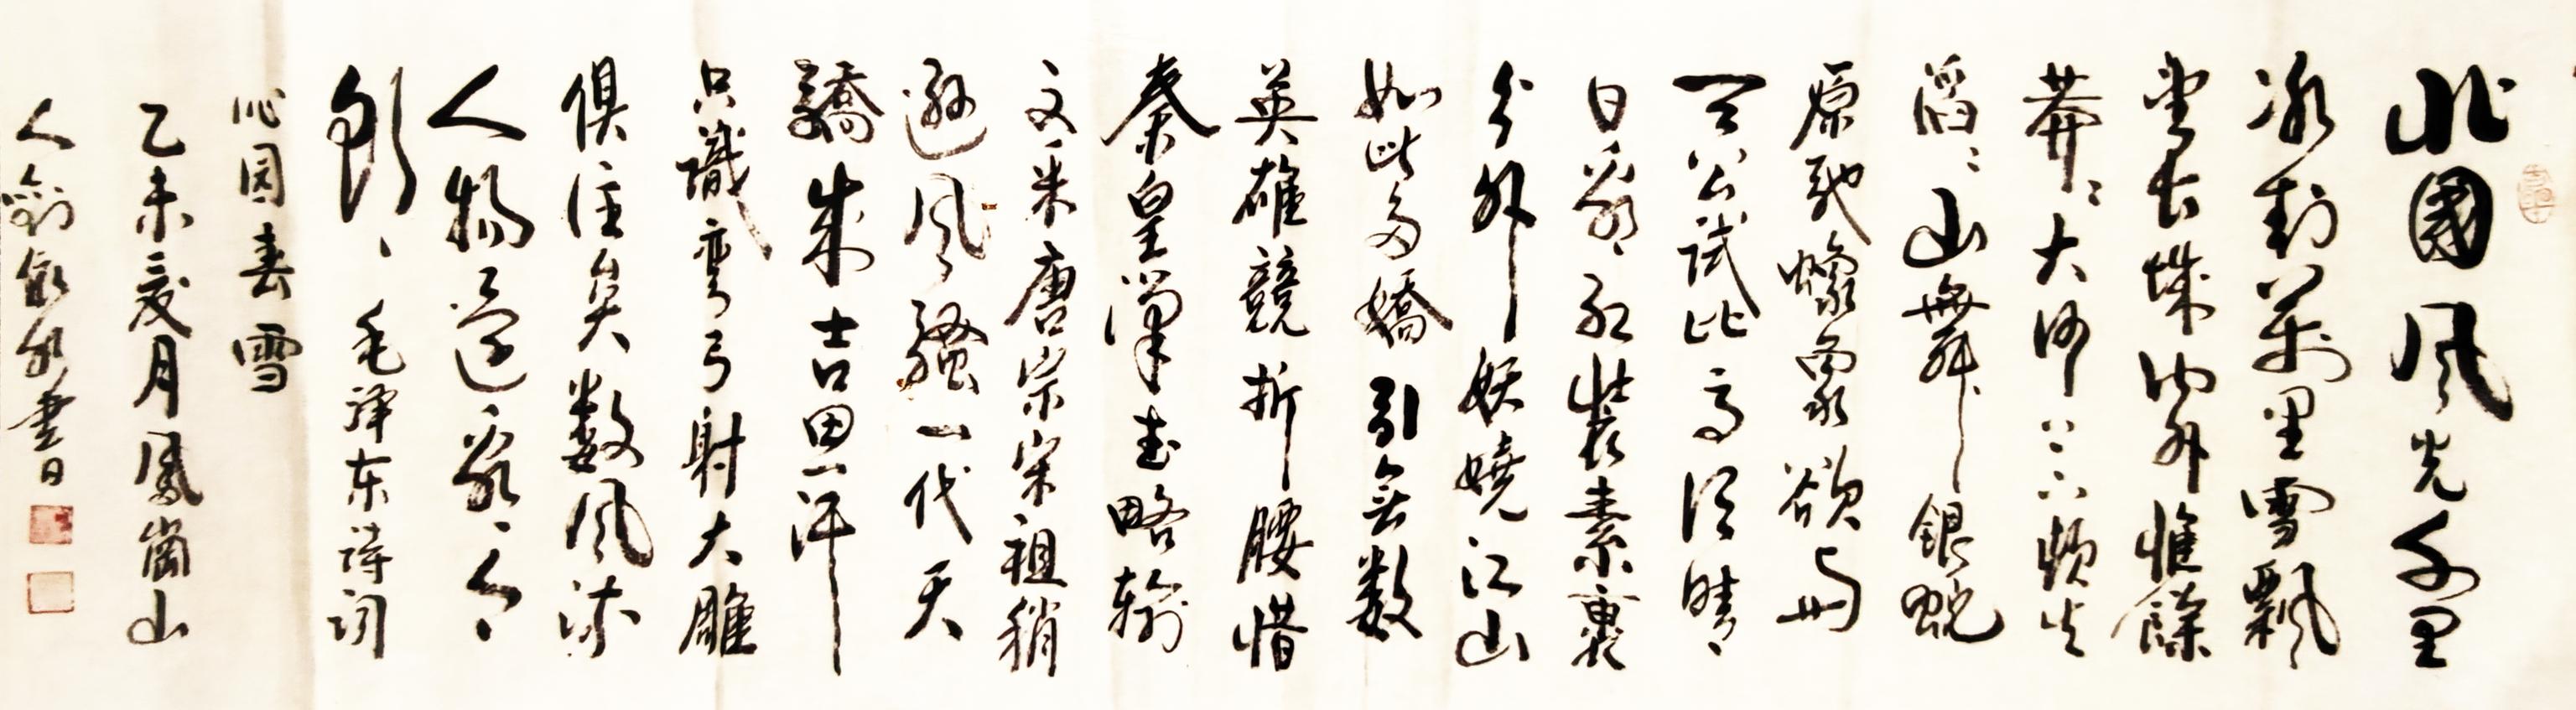 北國風光千里
冰封萬里雪飄
望長城内外惟餘
莽〻大河上下頓失
滔〻山舞銀蛇
原馳蠟象欲與
天公試比高須晴
日看紅裝素裹
分外妖嬈江山
如此多嬌引無数
英雄競折腰惜
秦皇漢武略輸
文采唐宗宋祖稍
遜風騷一代天
驕成吉思汗
只識彎弓射大雕
俱往矣数風流
人物還看今
朝 毛泽东詩词
沁园春雪
乙未夏月鳳崗山
人劍書